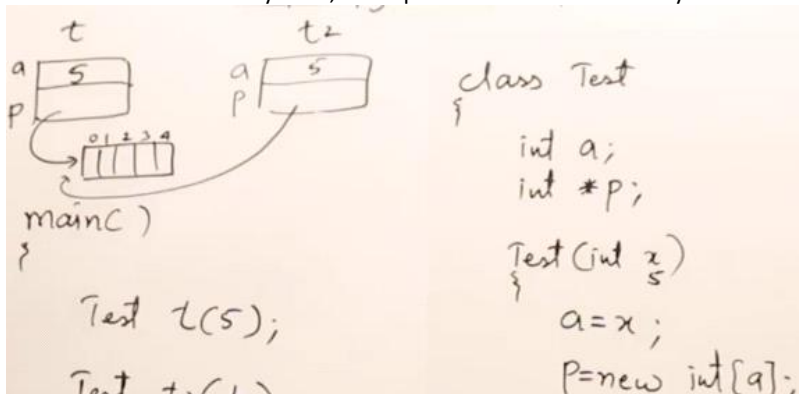 t
t2
a 5
p
a 5
p
0 1 2 3 4
main()
{
Test t(5);
Test
class Test
{
int a;
int *p;
Test(int x)
5
{
a=x;
p=new int[a];